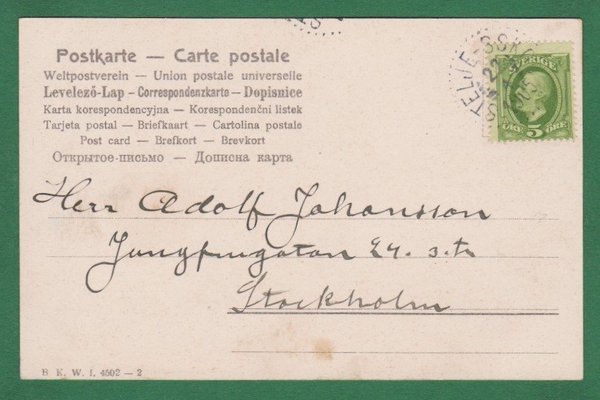 Postkarte — Carte postale
Weltpostverein — Union postale universelle
Levelező-Lap — Correspondenzkarte — Dopisnice
Karta korespondencyjna — Korespondenční listek
Tarjeta postal — Briefkaart — Cartolina postale
Post card — Brefkort — Brevkort
Открытое-письмо — Дописна карта
SVERIGE
ÖRE 5 ÖRE
Herr Adolf Johansson
Jungfrugatan 24. 3. tr
Stockholm
B. K. W. I. 4502 — 2